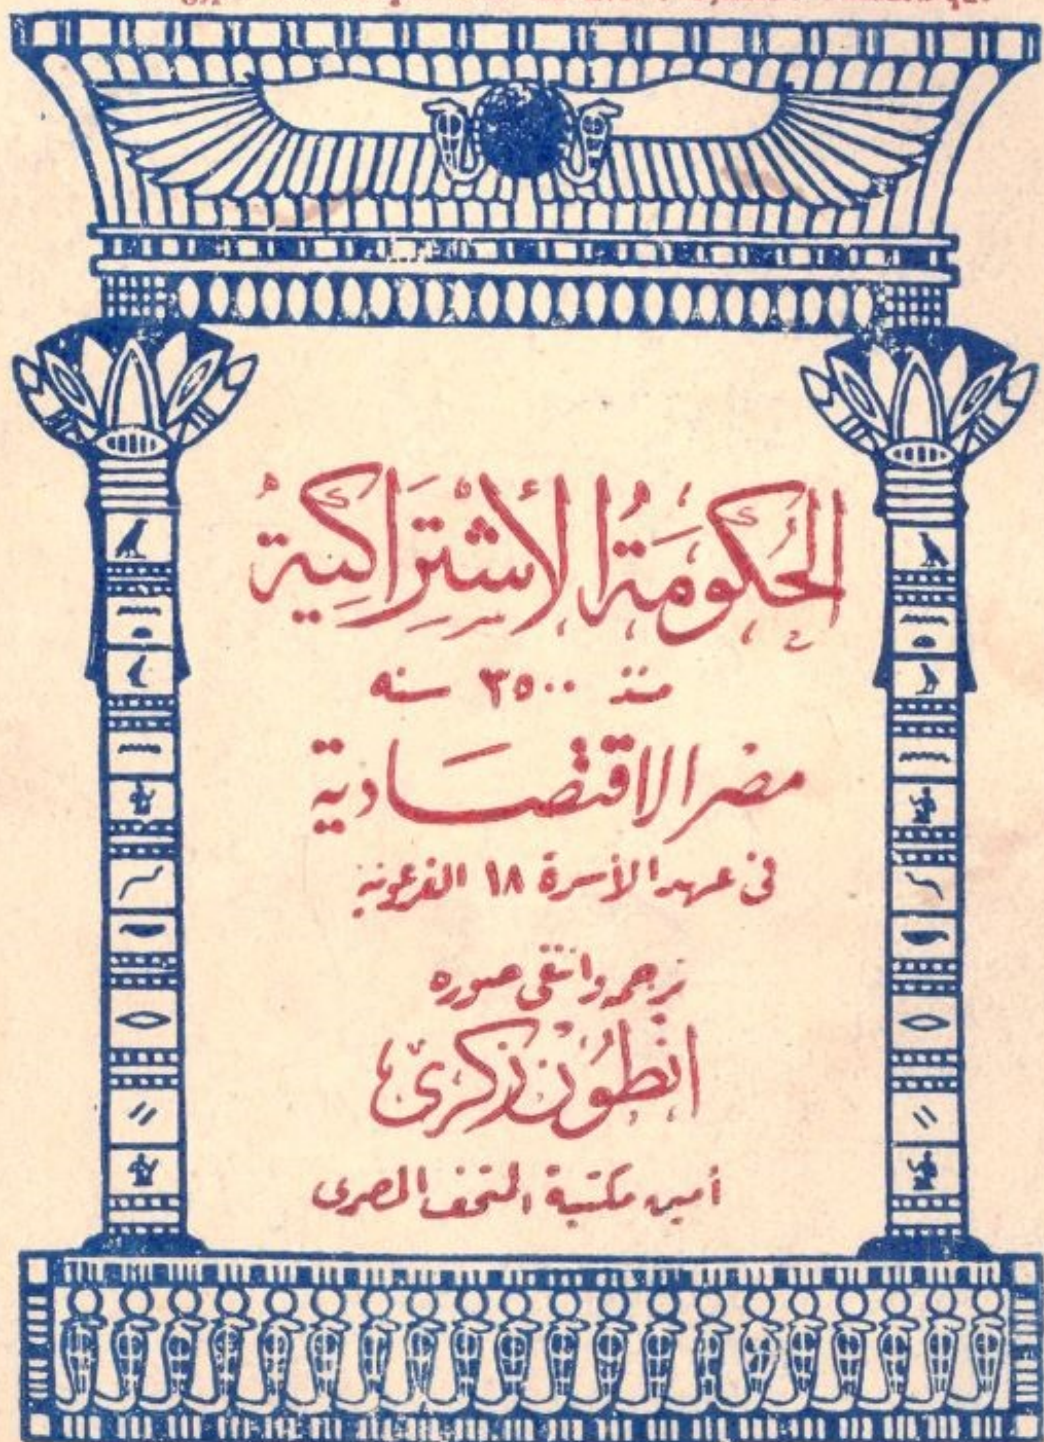 الحُكُومَةُ الأَشْتِرَاكِيَةُ
منذ ٣٥٠٠ سنه
مصر الاقتصادية
فى عهد الأسرة ١٨ الفرعونية
ترجمه وانتقى صوره
انطُون زكرى
أمين مكتبة المتحف المصرى